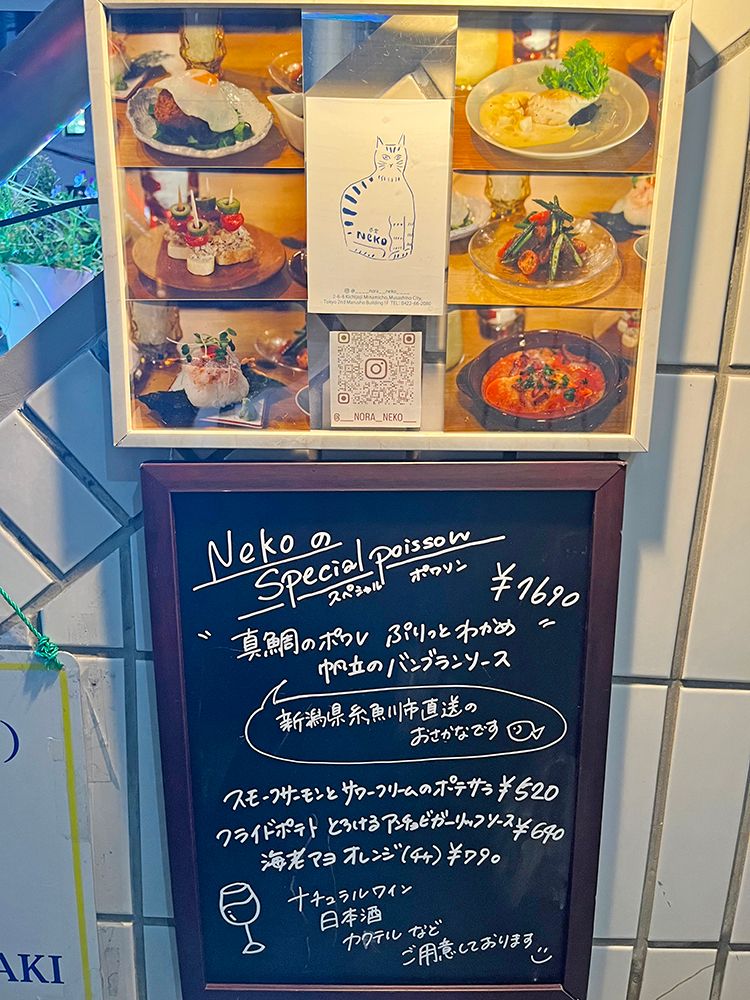 食堂
NEKO
@____nora__neko____
2-8-6 Kichijoji Minamicho, Musashino City,
Tokyo 2nd Marusho Building 1F TEL: 0422-66-2080
@___NORA__NEKO___
Neko の
Special poisson
スペシャル ポワソン
¥1690
"真鯛のポワレ ぷりっとわかめ"
帆立のバンブランソース
新潟県糸魚川市直送の
おさかなです
スモークサーモンとサワークリームのポテサラ ¥520
フライドポテト とろけるアンチョビガーリックソース ¥690
海老マヨ オレンジ(チケ) ¥790
ナチュラルワイン
日本酒
カクテルなど
ご用意しております
AKI